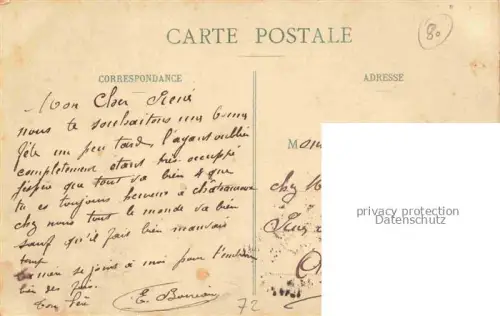 CARTE POSTALE
80
CORRESPONDANCE
ADRESSE
Mon Cher René
nous te souhaitons une bonne
fête un peu tard l'ayant oublié
complètement étant très occupé
J'espère que tout va bien & que
tu es toujours heureux à
chez nous tout le monde va bien
sauf qu'il fait bien mauvais
temps
se joins à moi pour
bien des
ton
E.
72
Mon
chez M
privacy protection
Datenschutz